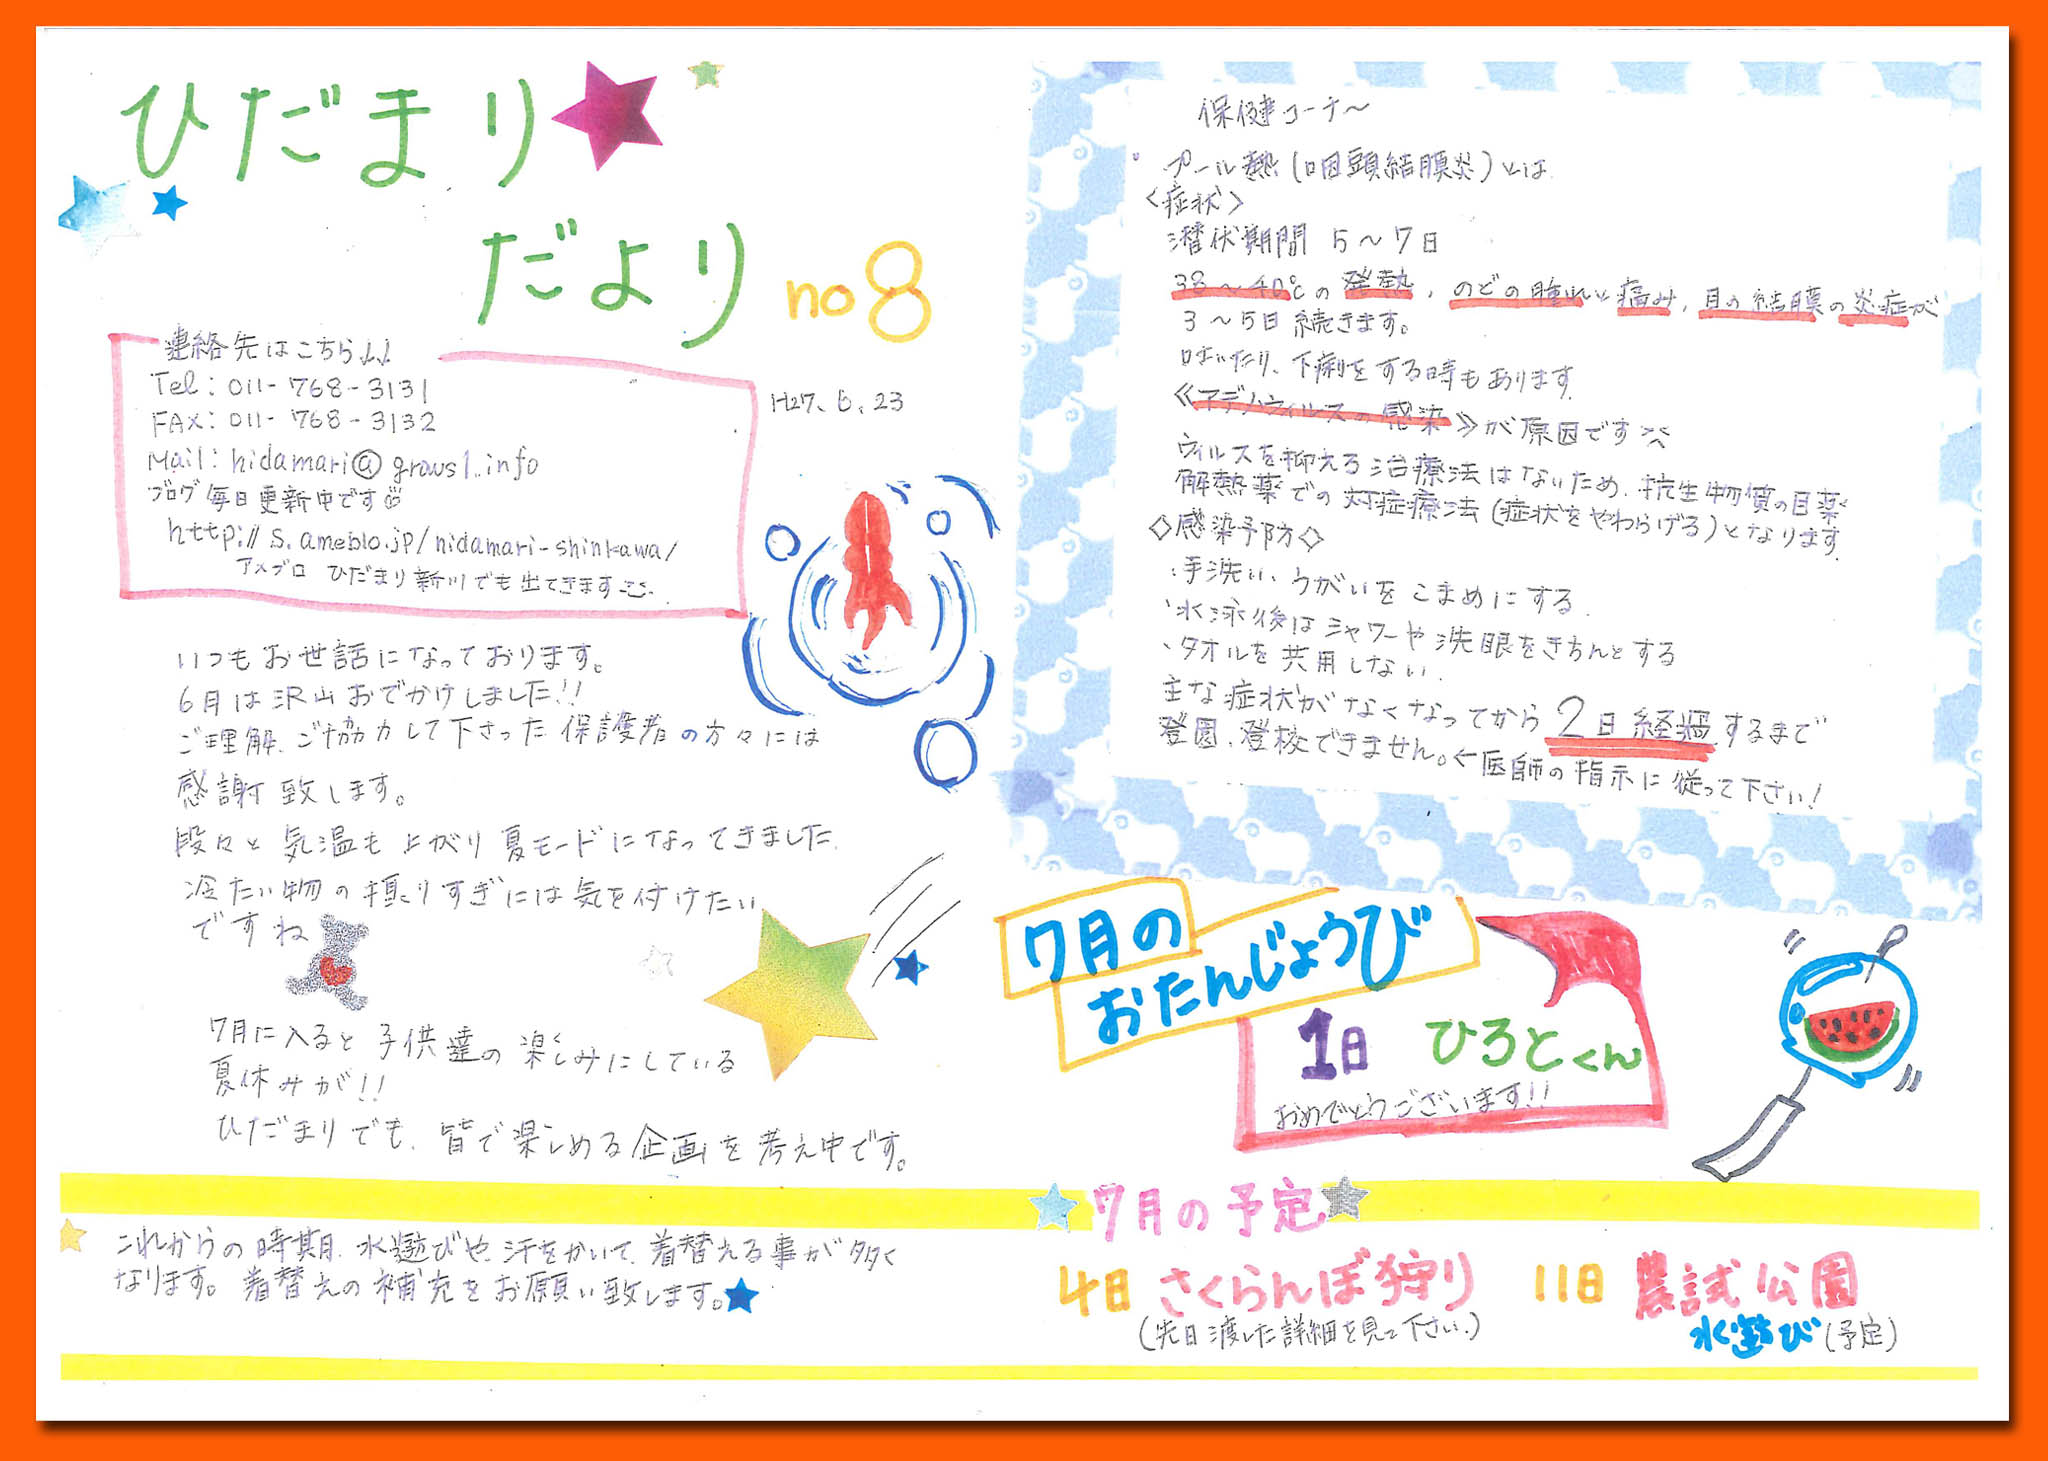 ひだまり
だより no8
連絡先はこちら↓↓
Tel：011-768-3131
FAX：011-768-3132
Mail：hidamari@grows1.info
ブログ毎日更新中です
http://s.ameblo.jp/hidamari-shinkawa/
アメブロ ひだまり新川でも出てきます
H27.6.23
いつもお世話になっております。
6月は沢山おでかけしました!!
ご理解、ご協力して下さった保護者の方々には
感謝致します。
段々と気温も上がり夏モードになってきました.
冷たい物の摂りすぎには気を付けたい
ですね
7月に入ると子供達の楽しみにしている
夏休みが!!
ひだまりでも、皆で楽しめる企画を考え中です。
これからの時期、水遊びや、汗をかいて、着替える事が多く
なります。着替えの補充をお願い致します。
保健コーナ〜
プール熱(咽頭結膜炎)とは
<症状>
潜伏期間 5〜7日
38〜40℃の発熱、のどの腫れと痛み、目の結膜の炎症が
3〜5日続きます。
吐いたり、下痢をする時もあります.
≪アデノウィルスの感染≫が原因です
ウィルスを抑える治療法はないため、抗生物質の目薬
解熱薬での対症療法(症状をやわらげる)となります.
◇感染予防◇
・手洗い、うがいをこまめにする.
・水泳後はシャワーや洗眼をきちんとする
・タオルを共用しない.
主な症状がなくなってから2日経過するまで
登園、登校できません。←医師の指示に従って下さい!
7月の
おたんじょうび
1日 ひろとくん
おめでとうございます!!
7月の予定
4日 さくらんぼ狩り
(先日渡した詳細を見て下さい.)
11日 農試公園
水遊び(予定)